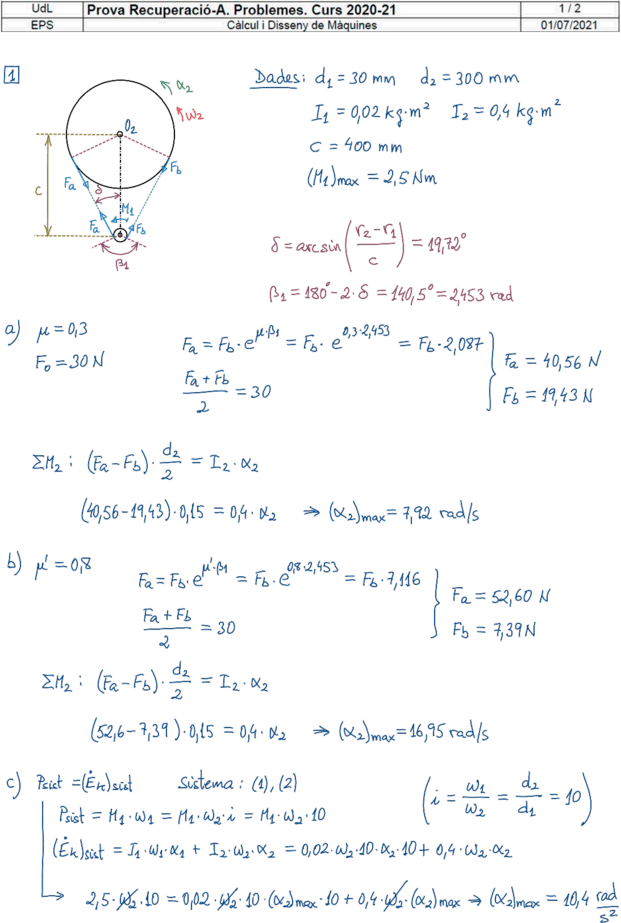 UdL Prova Recuperació-A. Problemes. Curs 2020-21 1 / 2
EPS Càlcul i Disseny de Màquines 01/07/2021
1
α₂
ω₂
O₂
Fa
Fb
δ
c
M₁
Fa
Fb
β₁
Dades: d₁ = 30 mm d₂ = 300 mm
I₁ = 0,02 kg·m² I₂ = 0,4 kg·m²
c = 400 mm
(M₁)max = 2,5 Nm
δ = arcsin((r₂-r₁)/c) = 19,72°
β₁ = 180° - 2·δ = 140,5° = 2,453 rad
a) μ = 0,3
F₀ = 30 N
Fa = Fb · e^(μ·β₁) = Fb · e^(0,3·2,453) = Fb · 2,087
(Fa + Fb)/2 = 30
Fa = 40,56 N
Fb = 19,43 N
ΣM₂ : (Fa - Fb) · d₂/2 = I₂ · α₂
(40,56 - 19,43) · 0,15 = 0,4 · α₂ ⇒ (α₂)max = 7,92 rad/s
b) μ' = 0,8
Fa = Fb · e^(μ'·β₁) = Fb · e^(0,8·2,453) = Fb · 7,116
(Fa + Fb)/2 = 30
Fa = 52,60 N
Fb = 7,39 N
ΣM₂ : (Fa - Fb) · d₂/2 = I₂ · α₂
(52,6 - 7,39) · 0,15 = 0,4 · α₂ ⇒ (α₂)max = 16,95 rad/s
c) Psist = (Ėk)sist Sistema : (1), (2) (i = ω₁/ω₂ = d₂/d₁ = 10)
Psist = M₁ · ω₁ = M₁ · ω₂ · i = M₁ · ω₂ · 10
(Ėk)sist = I₁ · ω₁ · α₁ + I₂ · ω₂ · α₂ = 0,02 · ω₂ · 10 · α₂ · 10 + 0,4 · ω₂ · α₂
→ 2,5 · ω₂ · 10 = 0,02 · ω₂ · 10 · (α₂)max · 10 + 0,4 · ω₂ · (α₂)max → (α₂)max = 10,4 rad/s²